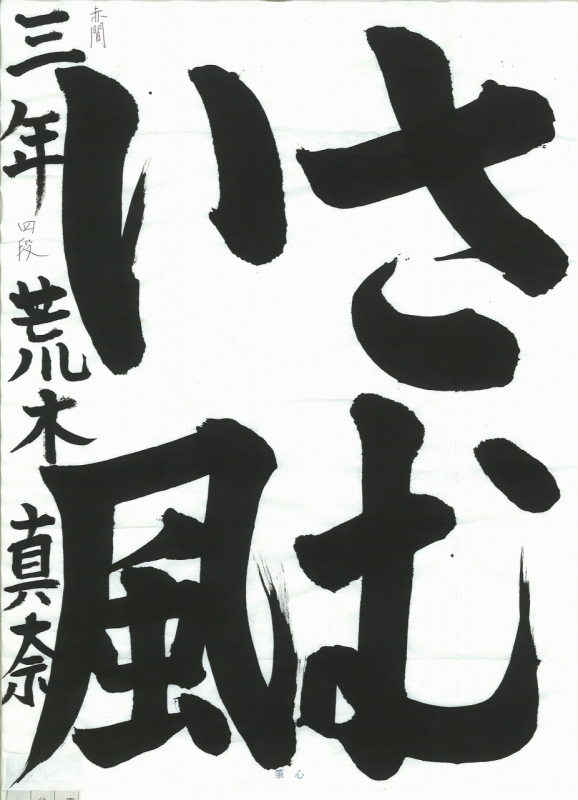 さむ
い風
三年 四段 荒木 真奈
赤間
筆心